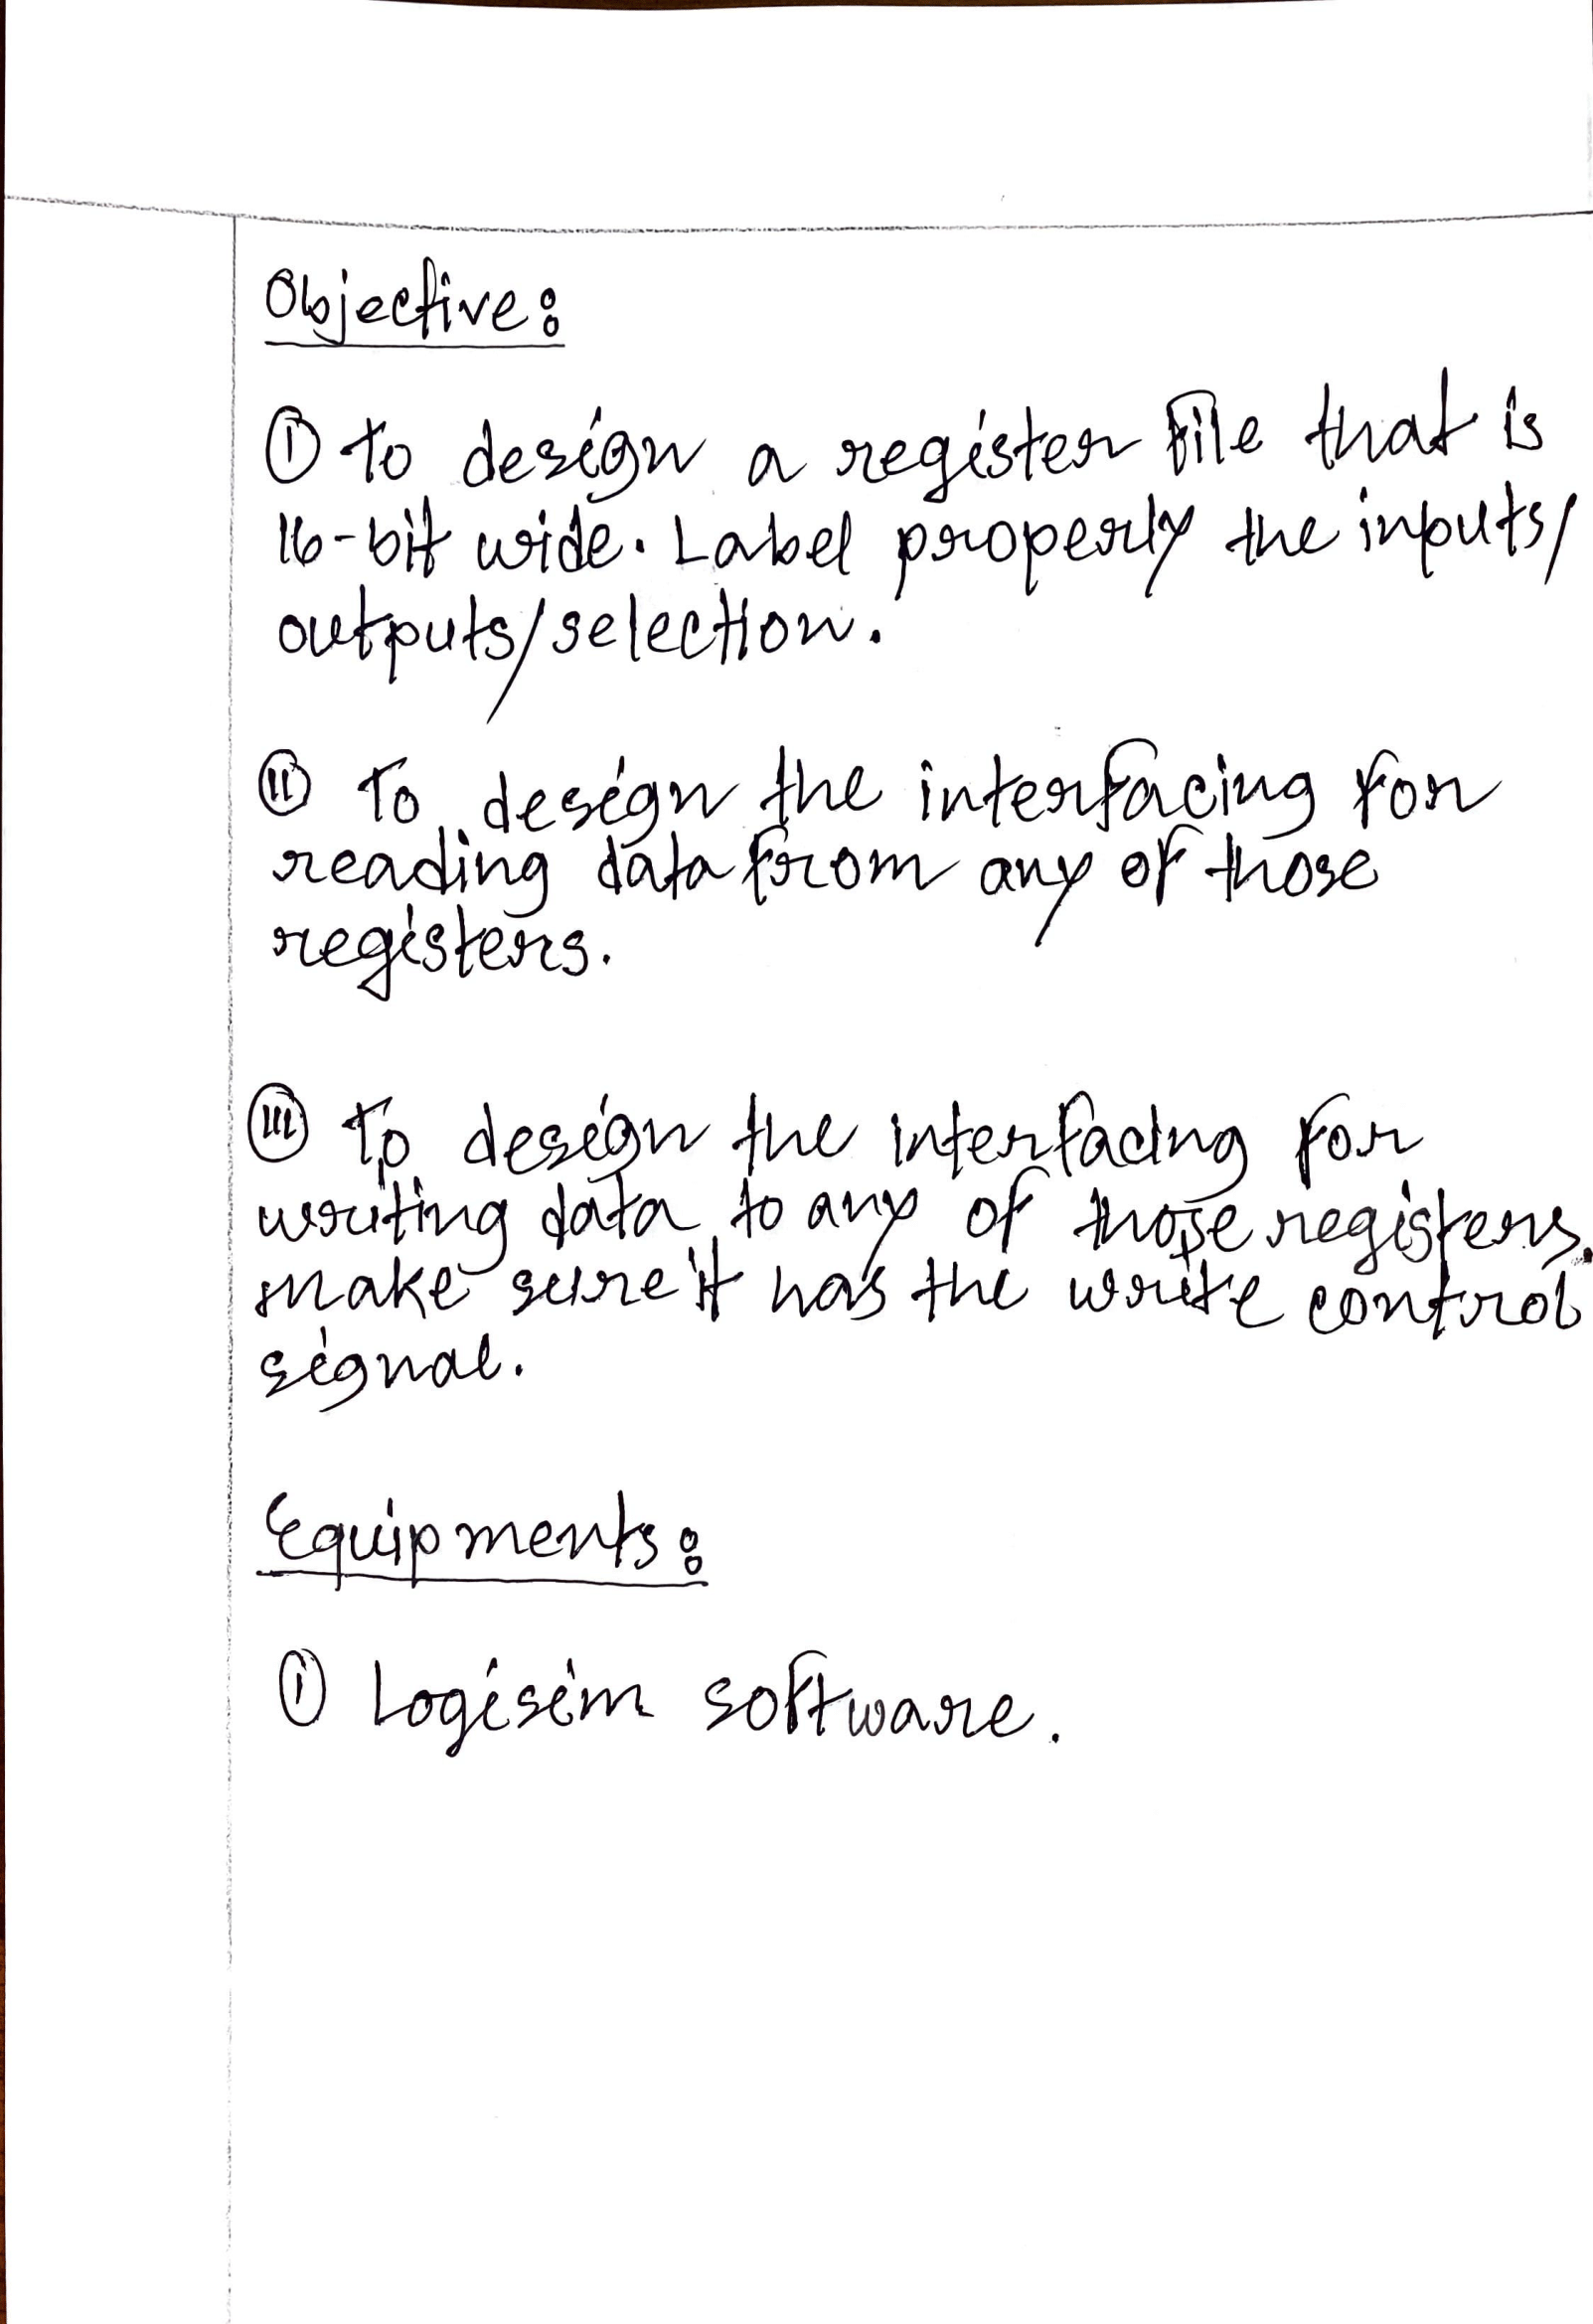 Objective:
① To design a register file that is
16-bit wide. Label properly the inputs/
outputs/selection.
⑪ To design the interfacing for
reading data from any of those
registers.
⑪① To design the interfacing for
writing data to any of those registers.
make sure it has the write control
signal.
Equipments:
① Logisim software.